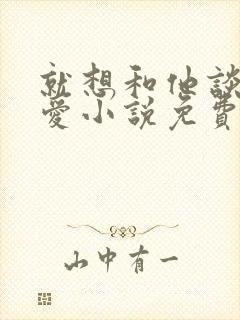 就想和他談
愛小說免費
山中有一